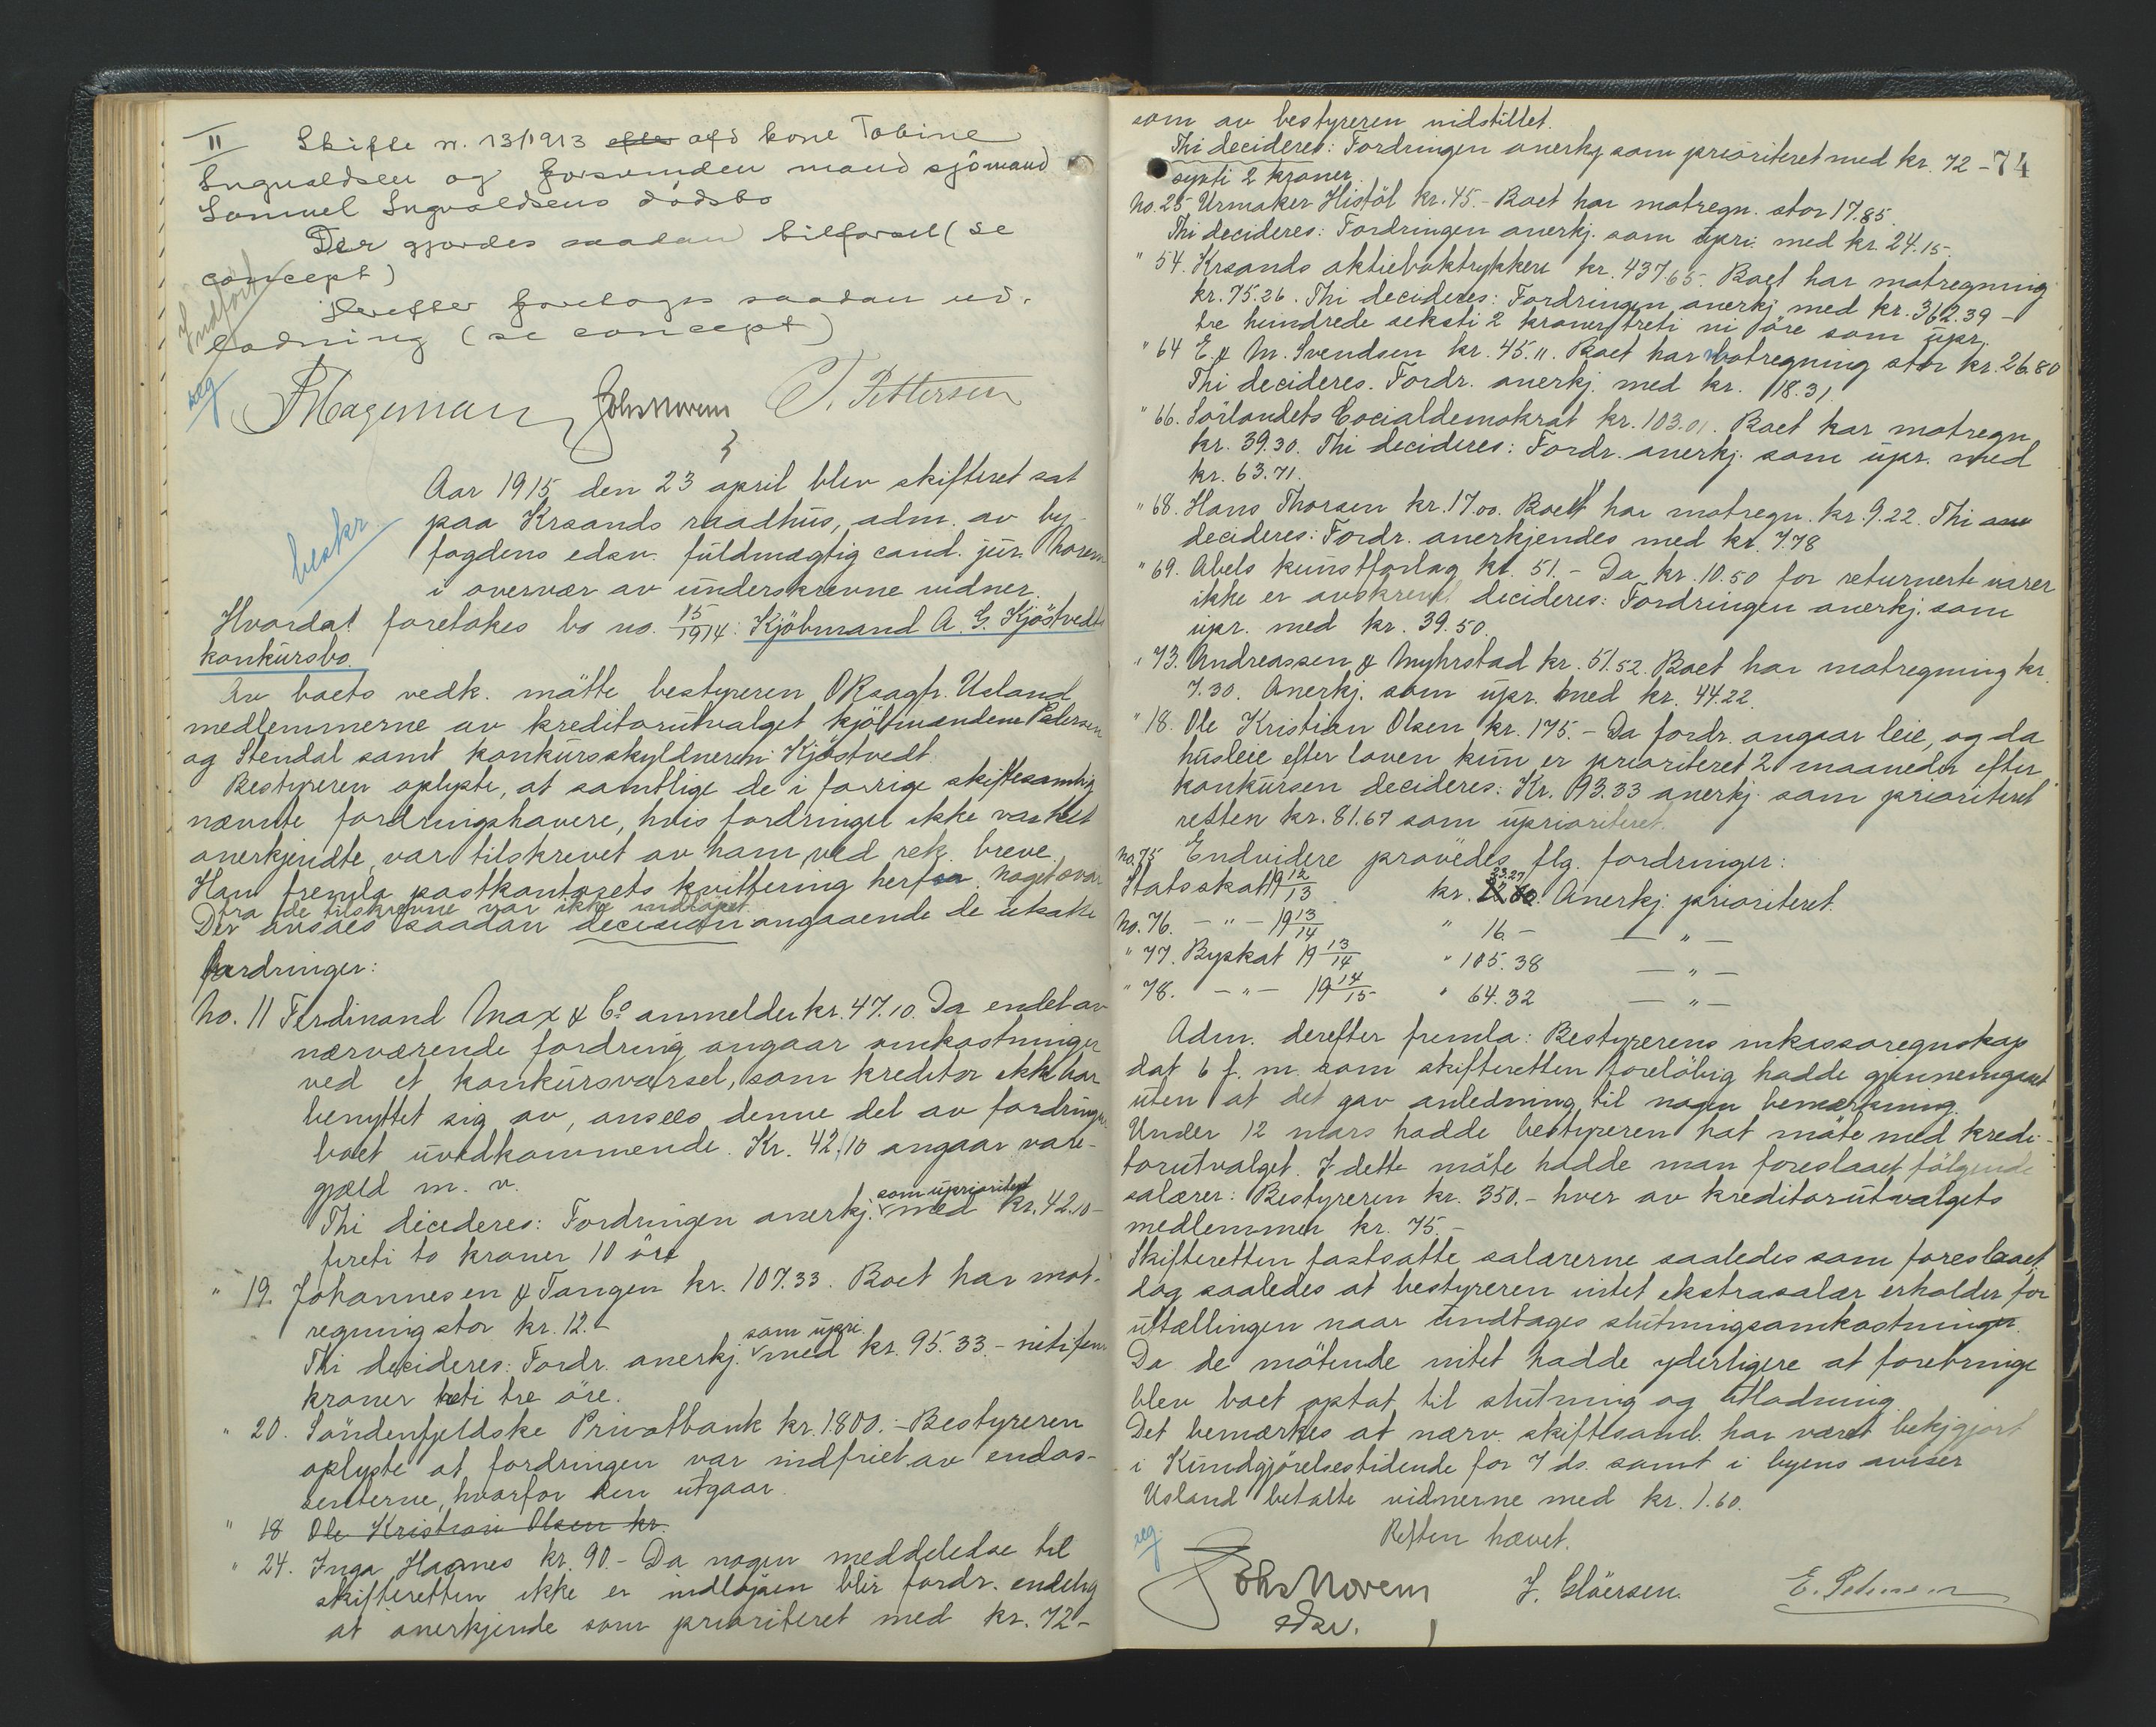 II Skifte nr. 13/1913 efter afd kone Tobine
Ingvaldsen og forsvunden mand sjömand
Samuel Ingvaldsens dödsbo
Der gjordes saadan tilförsel (se
concept)
Indfört
Herefter foretoges saadan ud-
lodning (se concept)
reg
Hageman Johs Norem T. Pettersen
Aar 1915 den 23 april blev skifteret sat
paa Krsands raadhus, adm. av by-
fogdens edsv. fuldmægtig cand. jur. Norem
i overvær av underskrevne vidner.
beskr
Hvorda! foretokes bo no. 15/1914: Kjöbmand A. G. Kjöstvedts
konkursbo.
Av boets vedk. mötte bestyreren ORsagf. Usland
medlemmerne av kreditorutvalget kjöbmændene Petersen
og Stendal samt konkursskyldneren Kjöstvedt.
Bestyreren oplyste, at samtlige de i forrige skiftesamling
nævnte fordringshavere, hvis fordringer ikke var helt
anerkjendte, var tilskrevet av ham ved rek. breve.
Han fremla postkontorets kvittering herfor. Noget svar
fra de tilskrevne var ikke indlöpet.
Der avsaes saadan decision angaaende de utsatte
fordringer:
No. 11 Ferdinand Max & Co anmelder kr. 47.10. Da endel av
nærværende fordring angaar omkostninger
ved et konkursvarsel, som kreditor ikke har
benyttet sig av, ansees denne del av fordringen
boet uvedkommende. Kr. 42.10 angaar vare-
gjæld m. v.
Thi decideres: Fordringen anerkj. som uprioritert med kr. 42.10 -
firti to kroner 10 öre
" 19. Johannesen & Tangen kr. 107.33. Boet har mot-
regning stor kr. 12.-
Thi decideres: Fordr. anerkj. som upri. med kr. 95.33. - nitifem
kroner treti tre öre.
" 20. Söndenfjeldske Privatbank kr. 1800.- Bestyreren
oplyste at fordringen var indfriet av endos-
senterne, hvorfor den utgaar.
" 18 Ole Kristian Olsen kr.
" 24. Inga Haanes kr. 90.- Da nogen meddelelse til
skifteretten ikke er indlöpen blir fordr. endelig
at anerkjende som prioriteret med kr. 72-
som av bestyreren indstillet.
Thi decideres: Fordringen anerkj som prioriteret med kr. 72 -
74
sytti 2 kroner.
No. 25 Urmaker Histöl kr. 45.- Boet har motregn. stor 17.85.
Thi decideres: Fordringen anerkj. som upri. med kr. 24.15.
" 54. Krsands aktieboktrykkeri kr. 437.65. Boet har motregning
kr. 75.26. Thi decideres: Fordringen anerkj. med kr. 362.39 -
tre hundrede seksti 2 kroner treti ni öre som upr.
" 64 E. & M. Svendsen kr. 45.11. Boet har motregning stor kr. 26.80
Thi decideres. Fordr. anerkj. med kr. 18.31.
" 66. Sörlandets Socialdemokrat kr. 103.01. Boet har motregn
kr. 39.30. Thi decideres: Fordr. anerkj. som upr. med
kr. 63.71.
" 68. Hans Thorsen kr. 17.00. Boet har motregn. kr. 9.22. Thi ane
decideres: Fordr. anerkjendes med kr. 7.78
" 69. Abels kunstforlag kr. 51.- Da kr. 10.50 for returnerte varer
ikke er avskrevet decideres: Fordringen anerkj. som
upr. med kr. 39.50.
" 73. Andreassen & Myhrstad kr. 51.52. Boet har motregning kr.
7.30. Anerkj. som upr. med kr. 44.22.
" 18. Ole Kristian Olsen kr. 175.- Da fordr. angaar leie, og da
husleie efter loven kun er prioriteret 2 maaneder efter
konkursen decideres: Kr. 93.33 anerkj. som prioriteret
resten kr. 81.67 som uprioriteret.
No. 75 Endvidere prövedes flg. fordringer:
Statsskat 19 12/13 kr. 23.27 Anerkj. prioriteret.
No. 76. - " - 19 13/14 " 16.- - " -
" 77. Byskat 19 13/14 " 105.38 - " -
" 78. - " - 19 14/15 " 64.32 - " -
Adm. derefter fremla: Bestyrerens inkassoregnskap
dat 6 f. m. som skifteretten forelöbig hadde gjennemgaaet
uten at det gav anledning til nogen bemerkning.
Under 12 mars hadde bestyreren hat möte med kredi-
torutvalget. I dette möte hadde man foreslaaet fölgende
salærer: Bestyreren kr. 350.- hver av kreditorutvalgets
medlemmer kr. 75.-
Skifteretten fastsatte salærerne saaledes som foreslaaet,
dog saaledes at bestyreren intet ekstrasalær erholder for
uttællingen naar undtages slutningsomkostninger.
Da de mötende intet hadde yderligere at forebringe
blev boet optat til slutning og utlodning.
Det bemærkes at nærv. skiftesaml. har været bekjgjort
i Kundgjörelsestidende for 7 ds. samt i byens aviser
Usland betalte vidnerne med kr. 1.60.
Retten hævet.
reg.
Johs Norem J. Clöersen. E. Pedersen
edsv.